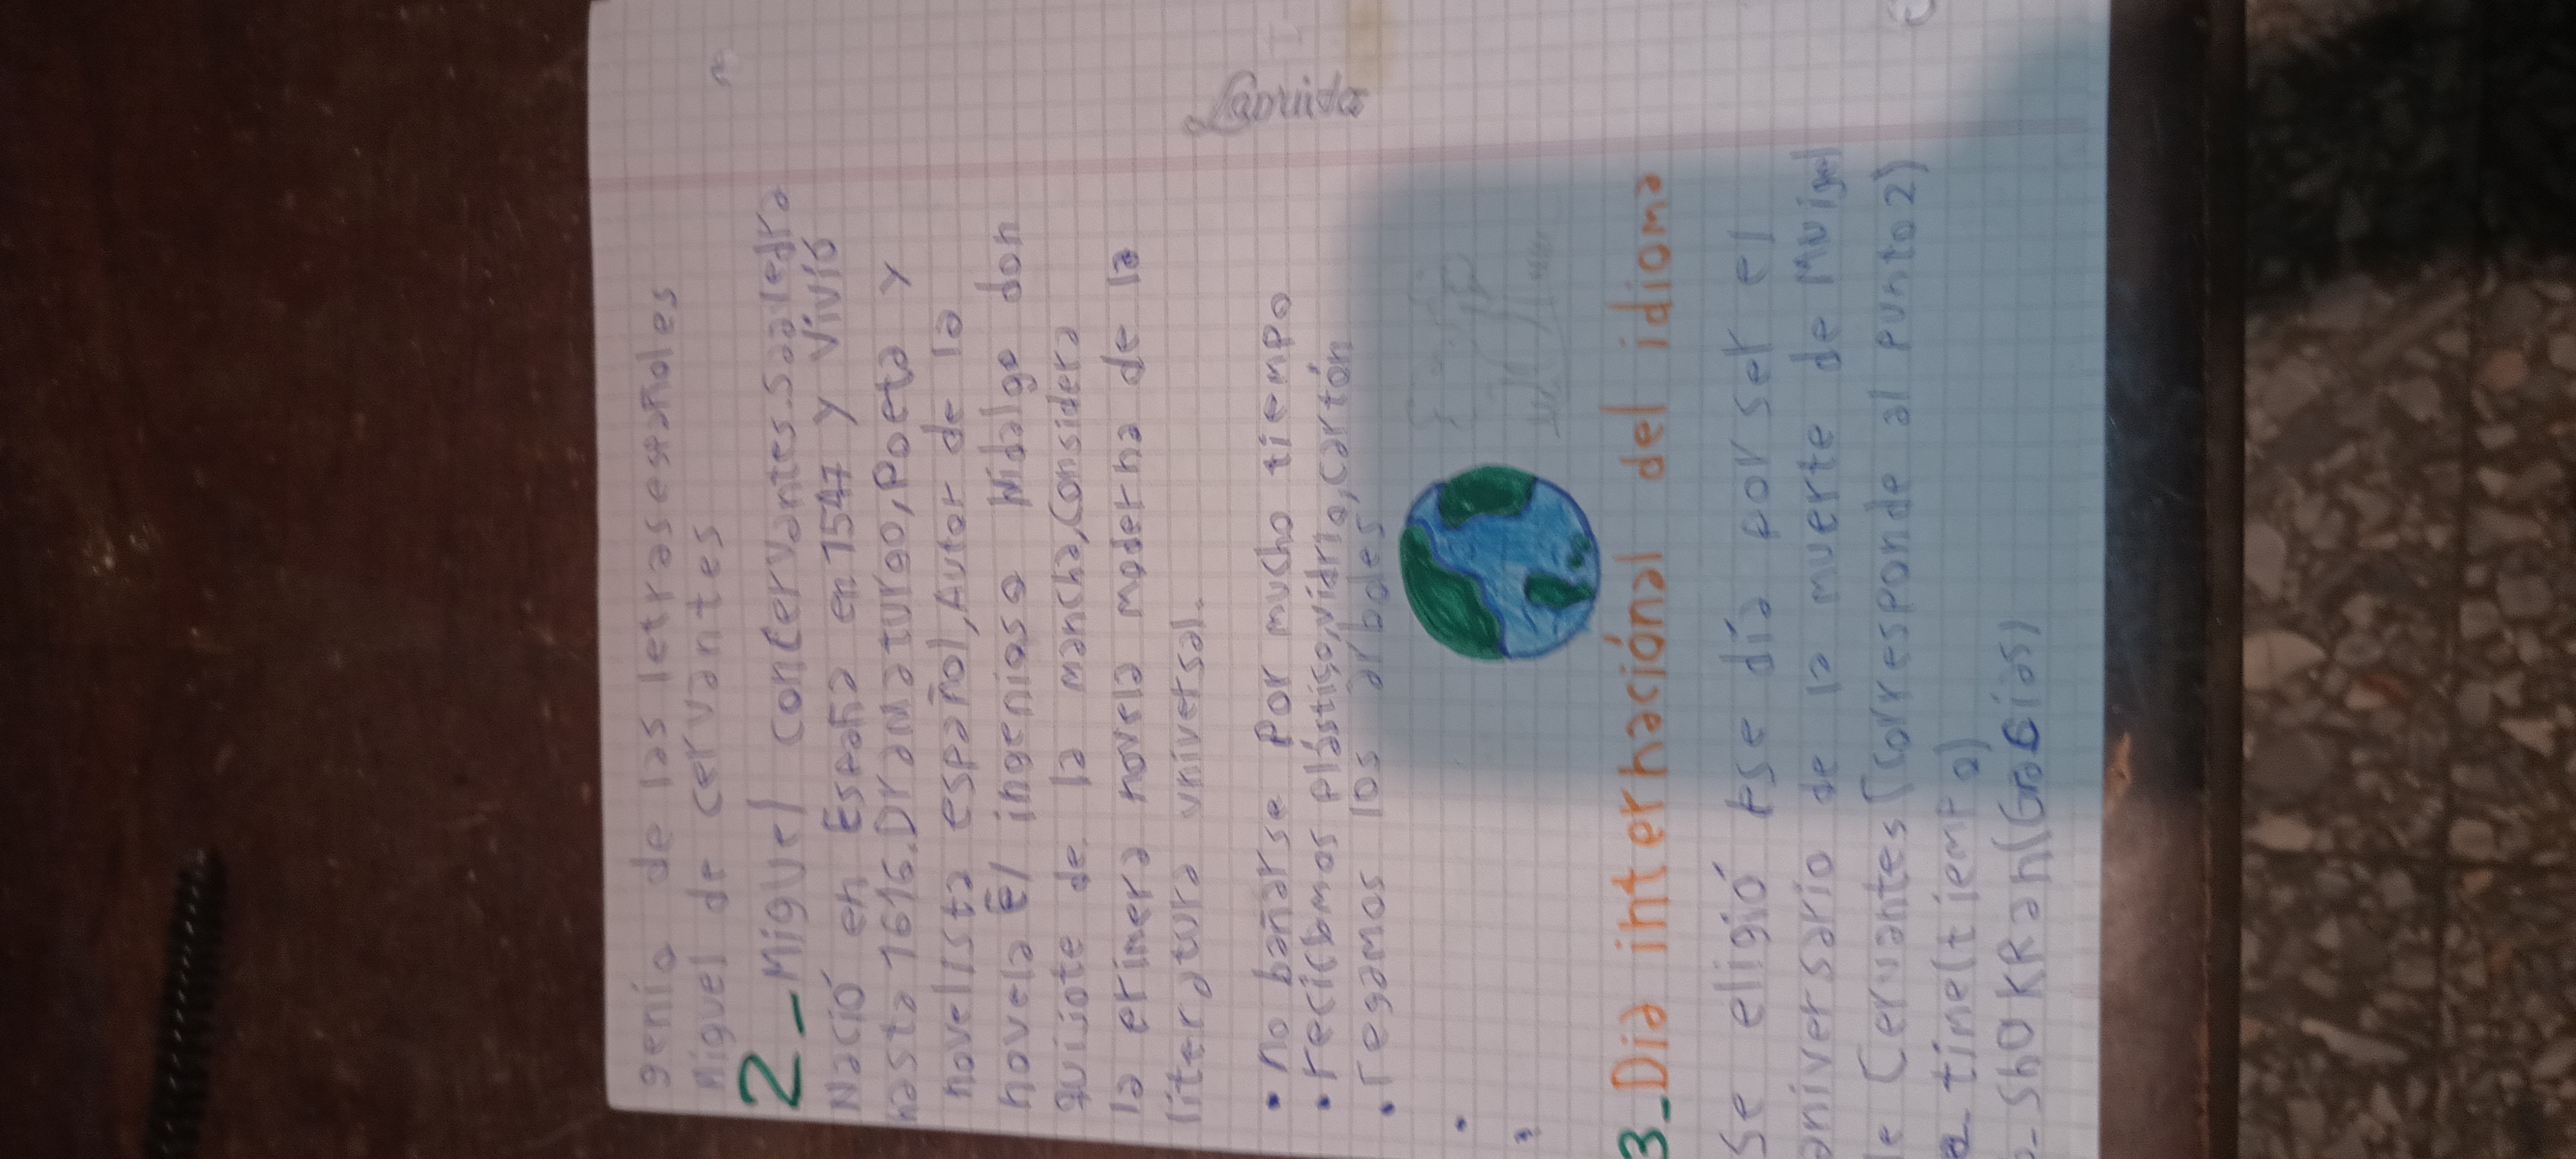 genio de las letras españoles
Miguel de cervantes
2_Miguel con Cervantes.Saavedra
Nació en España en 1547 y vivió
hasta 1616.Dramaturgo,Poeta y
novelista español,Autor de la
novela El ingenioso Hidalgo don
quijote de la mancha,Considera
la primera novela moderna de la
literatura universal.
• no bañarse Por mucho tiempo
• reciclamos plástico,vidrio,cartón
• regamos los árboles
3_Día internaciónal del idioma
Se eligió ese día por ser el
aniversario de la muerte de Muigel
de Cervantes(corresponde al punto2)
a_tinelt iempo)
b_ShOKRan(Gracias)
Laprida